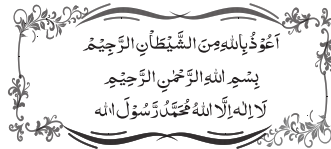 اَعُوْذُ بِاللهِ مِنَ الشَّيْطَانِ الرَّجِيْمْ
بِسْمِ اللهِ الرَّحْمٰنِ الرَّحِيْمِ
لَا اِلٰهَ اِلَّا اللهُ مُحَمَّدُ رَّسُوْلُ اللهِ